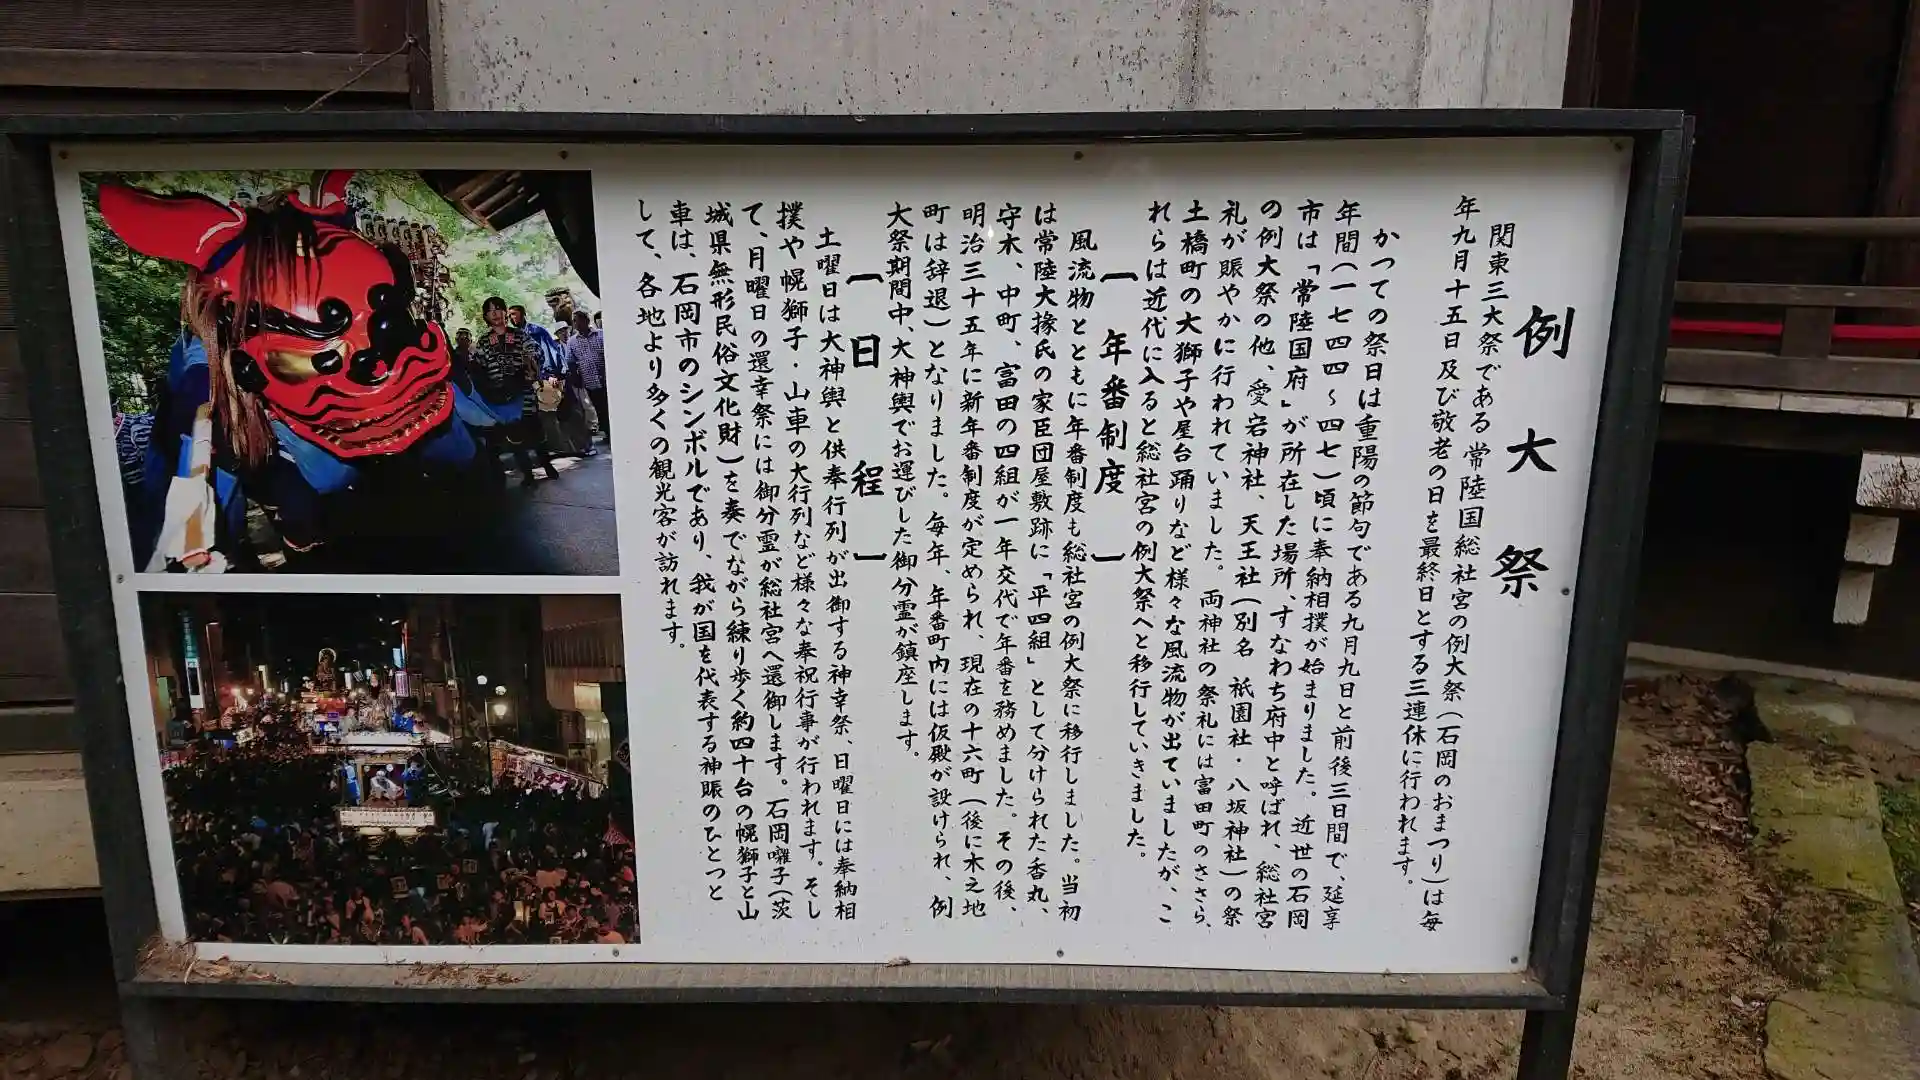 例大祭
関東三大祭である常陸国総社宮の例大祭（石岡のおまつり）は毎
年九月十五日及び敬老の日を最終日とする三連休に行われます。
かつての祭日は重陽の節句である九月九日と前後三日間で、延享
年間（一七四四〜四七）頃に奉納相撲が始まりました。近世の石岡
市は「常陸国府」が所在した場所、すなわち府中と呼ばれ、総社宮
の例大祭の他、愛宕神社、天王社（別名 祇園社・八坂神社）の祭
礼が賑やかに行われていました。両神社の祭礼には富田町のささら、
土橋町の大獅子や屋台踊りなど様々な風流物が出ていましたが、こ
れらは近代に入ると総社宮の例大祭へと移行していきました。
【年番制度】
風流物とともに年番制度も総社宮の例大祭に移行しました。当初
は常陸大掾氏の家臣団屋敷跡に「平四組」として分けられた香丸、
守木、中町、富田の四組が一年交代で年番を務めました。その後、
明治三十五年に新年番制度が定められ、現在の十六町（後に木之地
町は辞退）となりました。毎年、年番町内には仮殿が設けられ、例
大祭期間中、大神輿でお運びした御分霊が鎮座します。
【日程】
土曜日は大神輿と供奉行列が出御する神幸祭、日曜日には奉納相
撲や幌獅子・山車の大行列など様々な奉祝行事が行われます。そし
て、月曜日の還幸祭には御分霊が総社宮へ還御します。石岡囃子（茨
城県無形民俗文化財）を奏でながら練り歩く約四十台の幌獅子と山
車は、石岡市のシンボルであり、我が国を代表する神賑のひとつと
して、各地より多くの観光客が訪れます。